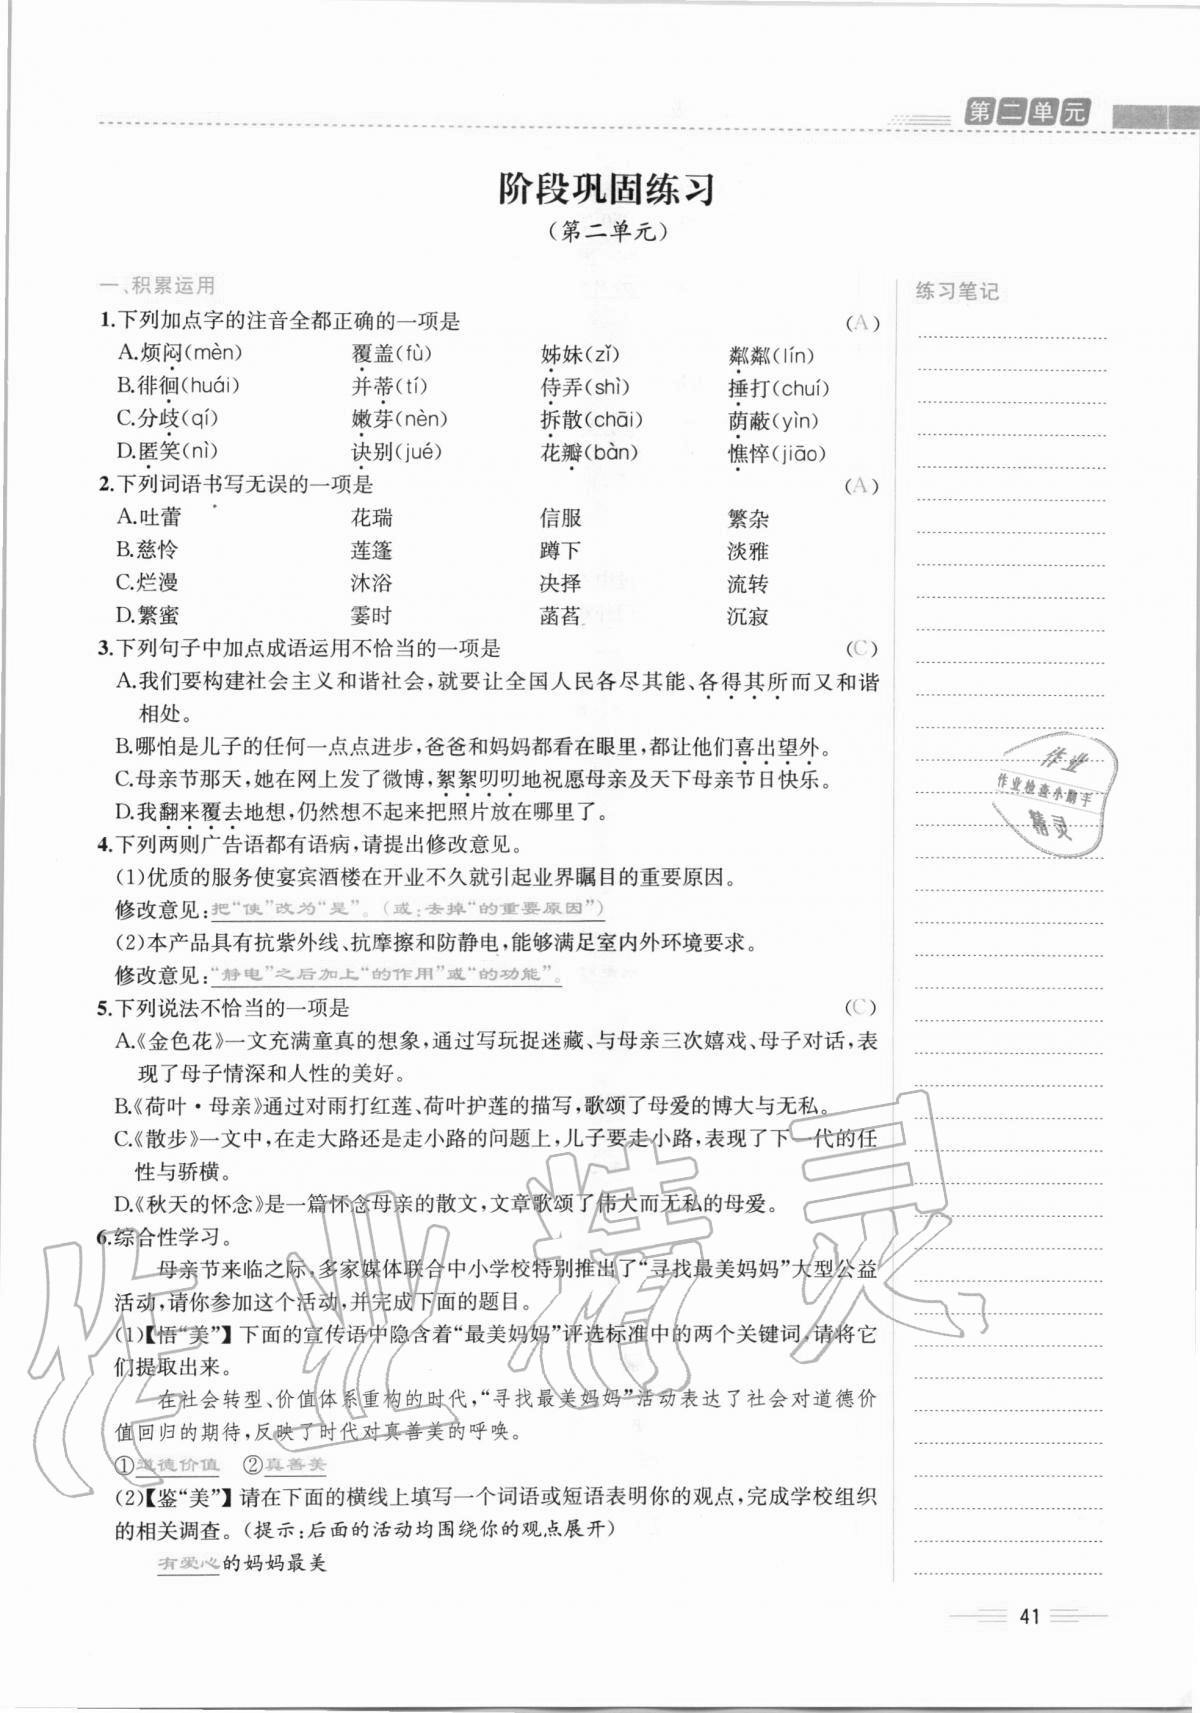 第二单元
阶段巩固练习
（第二单元）
一、积累运用
1.下列加点字的注音全都正确的一项是（A）
A.烦闷(mèn) 覆盖(fù) 姊妹(zǐ) 粼粼(lín)
B.徘徊(huái) 并蒂(tí) 侍弄(shì) 捶打(chuí)
C.分歧(qí) 嫩芽(nèn) 拆散(chāi) 荫蔽(yìn)
D.匿笑(nì) 诀别(jué) 花瓣(bàn) 憔悴(jiāo)
2.下列词语书写无误的一项是（A）
A.吐蕾 花瑞 信服 繁杂
B.慈怜 莲篷 蹲下 淡雅
C.烂漫 沐浴 决择 流转
D.繁蜜 霎时 菡萏 沉寂
3.下列句子中加点成语运用不恰当的一项是（C）
A.我们要构建社会主义和谐社会，就要让全国人民各尽其能、各得其所而又和谐
相处。
B.哪怕是儿子的任何一点点进步，爸爸和妈妈都看在眼里，都让他们喜出望外。
C.母亲节那天，她在网上发了微博，絮絮叨叨地祝愿母亲及天下母亲节日快乐。
D.我翻来覆去地想，仍然想不起来把照片放在哪里了。
4.下列两则广告语都有语病，请提出修改意见。
(1)优质的服务使宴宾酒楼在开业不久就引起业界瞩目的重要原因。
修改意见：把“使”改为“是”。（或：去掉“的重要原因”）
(2)本产品具有抗紫外线、抗摩擦和防静电，能够满足室内外环境要求。
修改意见：“静电”之后加上“的作用”或“的功能”。
5.下列说法不恰当的一项是（C）
A.《金色花》一文充满童真的想象，通过写玩捉迷藏、与母亲三次嬉戏、母子对话，表
现了母子情深和人性的美好。
B.《荷叶·母亲》通过对雨打红莲、荷叶护莲的描写，歌颂了母爱的博大与无私。
C.《散步》一文中，在走大路还是走小路的问题上，儿子要走小路，表现了下一代的任
性与骄横。
D.《秋天的怀念》是一篇怀念母亲的散文，文章歌颂了伟大而无私的母爱。
6.综合性学习。
母亲节来临之际，多家媒体联合中小学校特别推出了“寻找最美妈妈”大型公益
活动，请你参加这个活动，并完成下面的题目。
(1)【悟“美”】下面的宣传语中隐含着“最美妈妈”评选标准中的两个关键词，请将它
们提取出来。
在社会转型、价值体系重构的时代，“寻找最美妈妈”活动表达了社会对道德价
值回归的期待，反映了时代对真善美的呼唤。
①道德价值 ②真善美
(2)【鉴“美”】请在下面的横线上填写一个词语或短语表明你的观点，完成学校组织
的相关调查。（提示：后面的活动均围绕你的观点展开）
有爱心的妈妈最美
练习笔记
作业
作业检查小助手
精灵
作业精灵
41